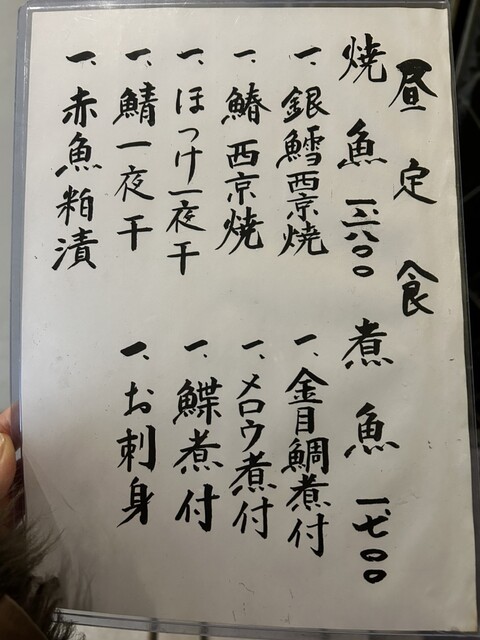 昼定食
焼魚 一、六〇〇
一、銀鱈西京焼
一、鰆西京焼
一、ほっけ一夜干
一、鯖一夜干
一、赤魚粕漬
煮魚 一、七〇〇
一、金目鯛煮付
一、メロウ煮付
一、鰈煮付
一、お刺身